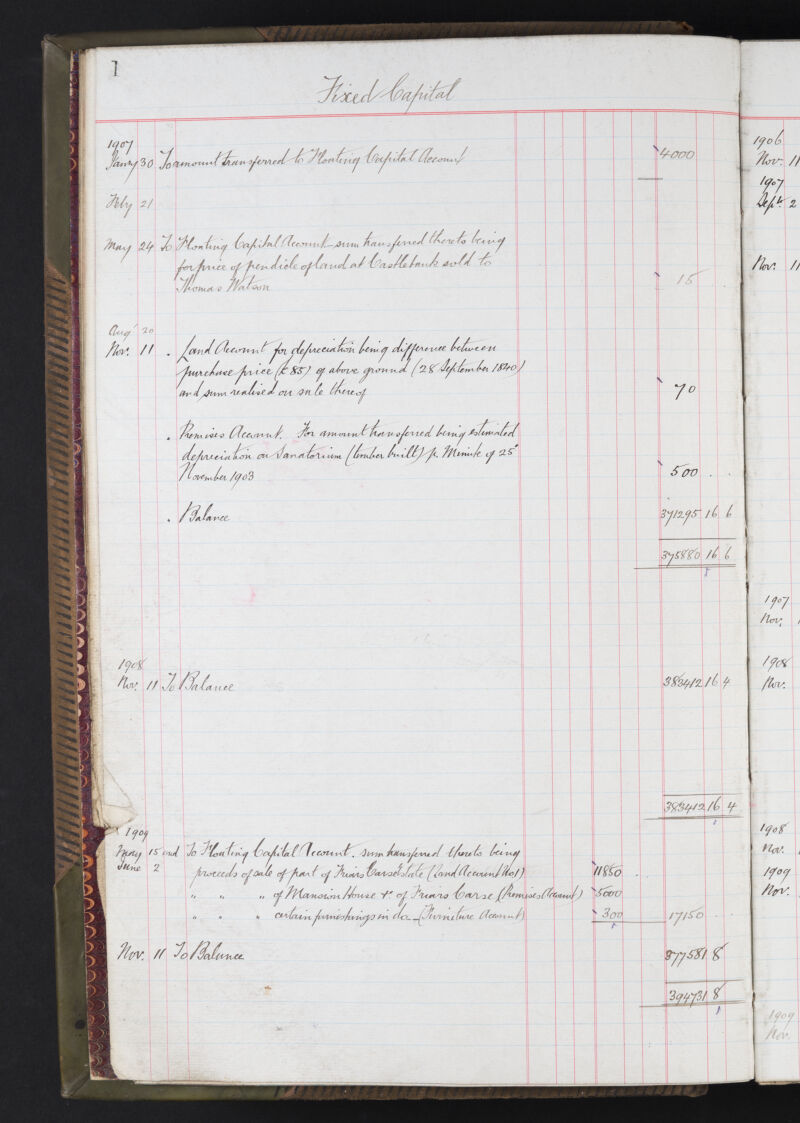 1
Fixed Capital
1907
Jany 30 To amount transferred to Floating Capital Account 4000
Feby 21
May 24 To Floating Capital Account sum transferred thereto being
for price of pendicle of land at Castlebank sold to
Thomas Watson 15
Augt 20
Nov. 11 . Land Account for depreciation being difference between
purchase price (£85) of above ground (28 September 1840)
and sum realised on sale thereof 70
. Premises Account. For amount transferred being estimated
depreciation on Sanatorium (timber built) p. Minute of 25
November 1903 500
. Balance 371295 16 6
375880 16 6
1908
Nov. 11 To Balance 383412 16 4
383412 16 4
1909
May 15 and To Floating Capital Account. sum transferred thereto being
June 2 proceeds of sale of part of Friars Carse Estate (Land Account No 1) 11850
" " " of Mansion House &c of Friars Carse (Premises Account) 5000
" " " certain furnishings in do - (Furniture Account) 300 17150
Nov. 11 To Balance 377581 8
394731 8
1906
Nov. 11
1907
Sept 2
Nov. 11
1907
Nov.
1908
Nov.
1908
Nov.
1909
Nov.
1909
Nov.